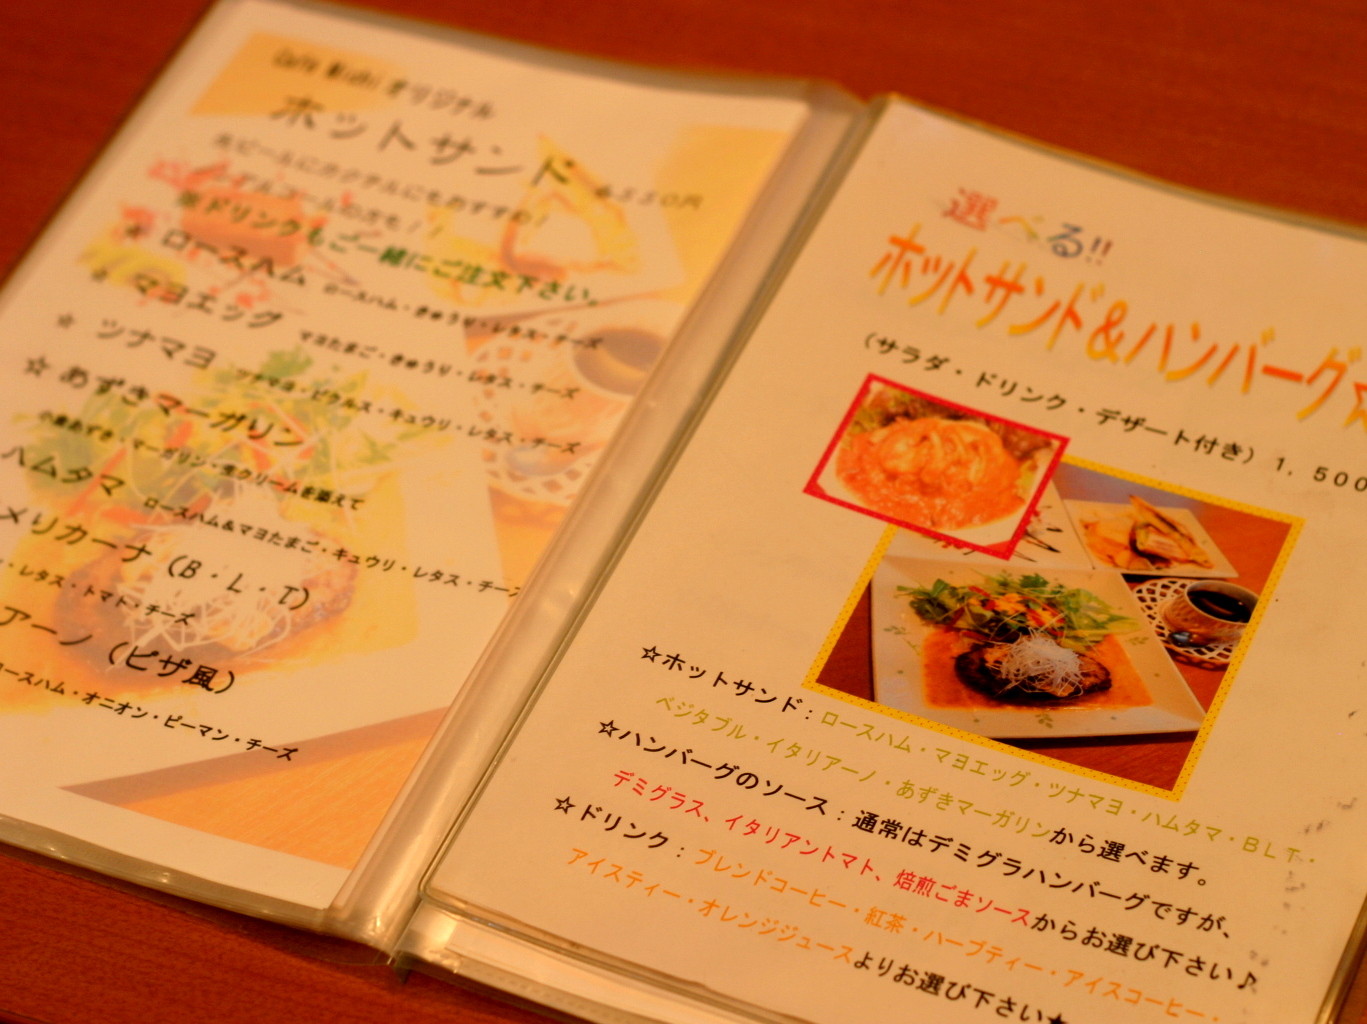 オリジナル
ホットサンド 各550円
生ビールにカクテルにもおすすめ!
※ドリンクもご一緒にご注文下さい。
☆ ロースハム ロースハム・きゅうり・レタス・チーズ
☆ マヨエッグ マヨたまご・きゅうり・レタス・チーズ
☆ ツナマヨ ツナマヨ・ピクルス・キュウリ・レタス・チーズ
☆ あずきマーガリン
小倉あずき・マーガリン・生クリームを添えて
ハムタマ ロースハム&マヨたまご・キュウリ・レタス・チーズ
メリカーナ(B・L・T)
・レタス・トマト・チーズ
アーノ(ピザ風)
ロースハム・オニオン・ピーマン・チーズ
選べる!!
ホットサンド&ハンバーグ☆
(サラダ・ドリンク・デザート付き)1,500
☆ホットサンド:ロースハム・マヨエッグ・ツナマヨ・ハムタマ・BLT・
ベジタブル・イタリアーノ・あずきマーガリンから選べます。
☆ハンバーグのソース:通常はデミグラハンバーグですが、
デミグラス、イタリアントマト、焙煎ごまソースからお選び下さい♪
☆ドリンク:ブレンドコーヒー・紅茶・ハーブティー・アイスコーヒー・
アイスティー・オレンジジュースよりお選び下さい★